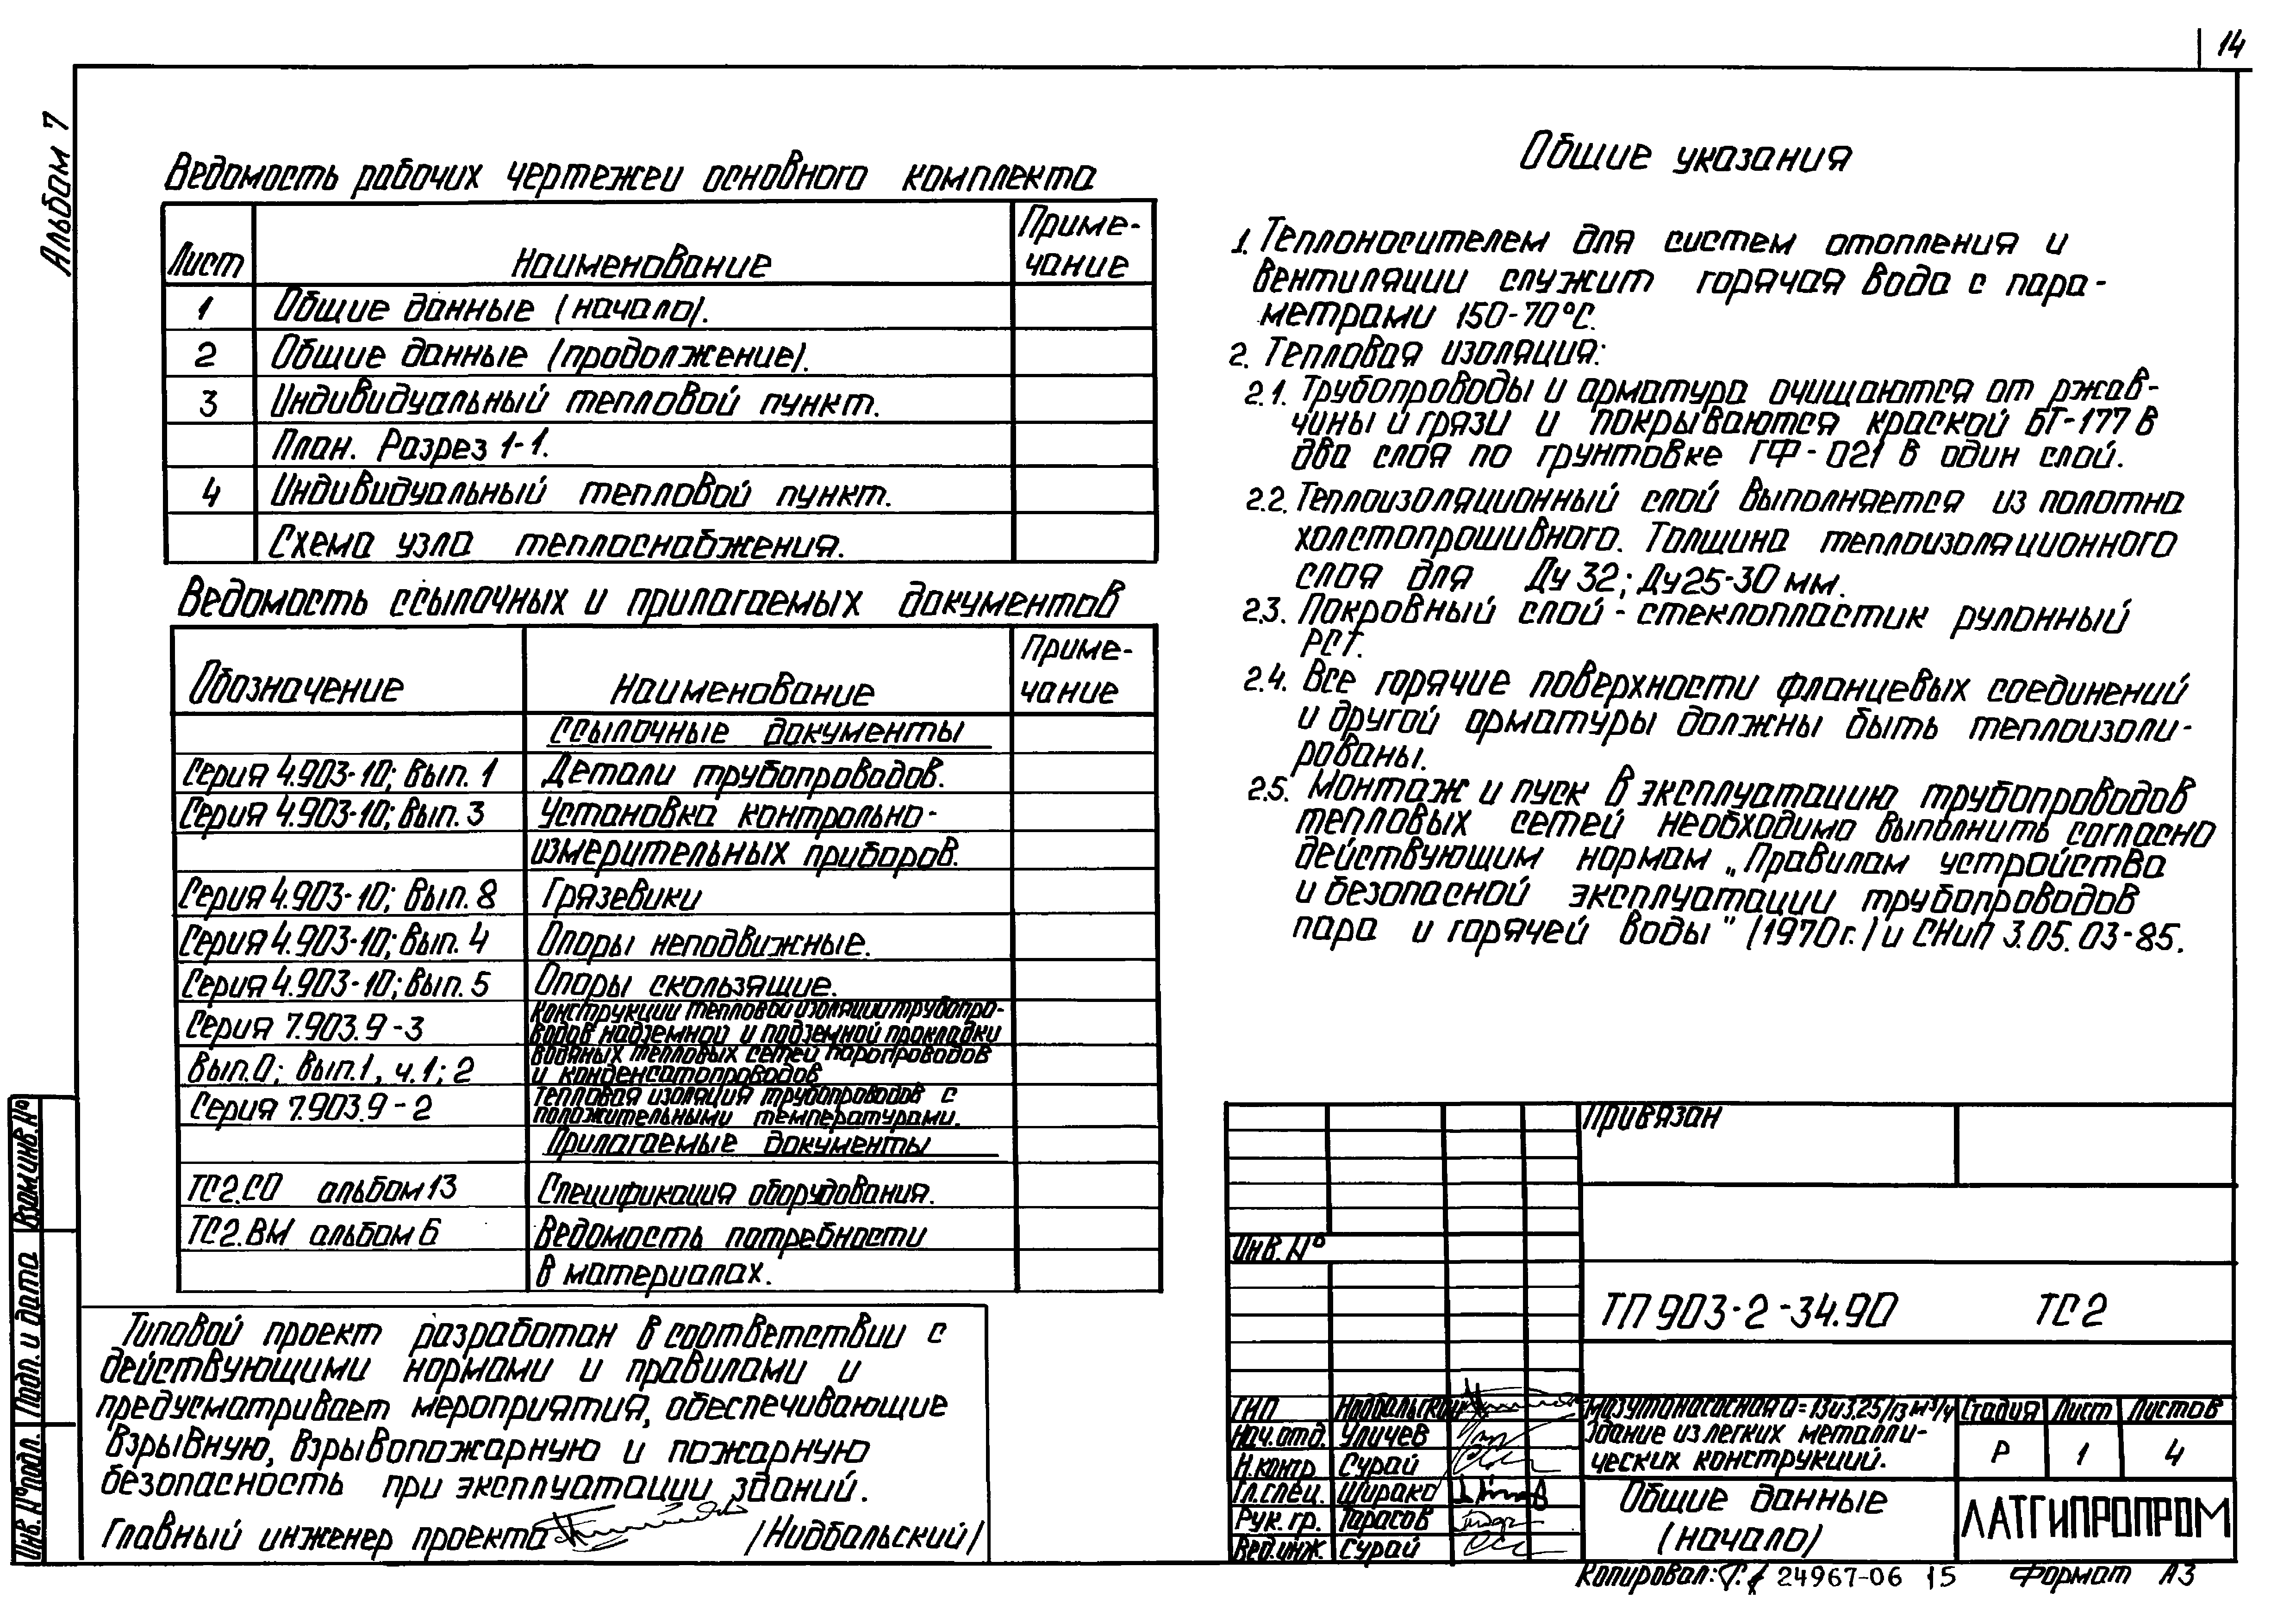 14
Альбом 7
Ведомость рабочих чертежей основного комплекта
Лист Наименование Приме-
чание
1 Общие данные (начало).
2 Общие данные (продолжение).
3 Индивидуальный тепловой пункт.
План. Разрез 1-1.
4 Индивидуальный тепловой пункт.
Схема узла теплоснабжения.
Ведомость ссылочных и прилагаемых документов
Обозначение Наименование Приме-
чание
Ссылочные документы
Серия 4.903-10; Вып. 1 Детали трубопроводов.
Серия 4.903-10; Вып. 3 Установка контрольно-
измерительных приборов.
Серия 4.903-10; Вып. 8 Грязевики
Серия 4.903-10; Вып. 4 Опоры неподвижные.
Серия 4.903-10; Вып. 5 Опоры скользящие.
Серия 7.903.9-3 Конструкции тепловой изоляции трубопро-
водов надземной и подземной прокладки
Вып.0; Вып.1, ч.1; 2 водяных тепловых сетей паропроводов
и конденсатопроводов
Серия 7.903.9-2 Тепловая изоляция трубопроводов с
положительными температурами.
Прилагаемые документы
ТС2.СО альбом 13 Спецификация оборудования.
ТС2.ВМ альбом 6 Ведомость потребности
в материалах.
Типовой проект разработан в соответствии с
действующими нормами и правилами и
предусматривает мероприятия, обеспечивающие
взрывную, взрывопожарную и пожарную
безопасность при эксплуатации зданий.
Главный инженер проекта /Нидбальский/
Общие указания
1. Теплоносителем для систем отопления и
вентиляции служит горячая вода с пара-
метрами 150-70°С.
2. Тепловая изоляция:
2.1. Трубопроводы и арматура очищаются от ржав-
чины и грязи и покрываются краской БТ-177 в
два слоя по грунтовке ГФ-021 в один слой.
2.2. Теплоизоляционный слой выполняется из полотна
холстопрошивного. Толщина теплоизоляционного
слоя для Ду 32; Ду25-30 мм.
2.3. Покровный слой - стеклопластик рулонный
РСТ.
2.4. Все горячие поверхности фланцевых соединений
и другой арматуры должны быть теплоизоли-
рованы.
2.5. Монтаж и пуск в эксплуатацию трубопроводов
тепловых сетей необходимо выполнить согласно
действующим нормам „Правилам устройства
и безопасной эксплуатации трубопроводов
пара и горячей воды" (1970г.) и СНиП 3.05.03-85.
Привязан
Инв. №
ТП 903-2-34.90 ТС2
ГИП Нидбальский
Нач.отд. Уличев
Н.контр Сурай
Гл.спец. Ширакс
Рук. гр. Тарасов
Вед.инж. Сурай
Мазутонасосная Q=13и3,25/13 м³/ч
Здание из легких металли-
ческих конструкций.
Стадия Лист Листов
Р 1 4
Общие данные
(начало)
ЛАТГИПРОПРОМ
Копировал: 24967-06 15 Формат А3
Взам.инв.№
Подп. и дата
Инв. № подл.